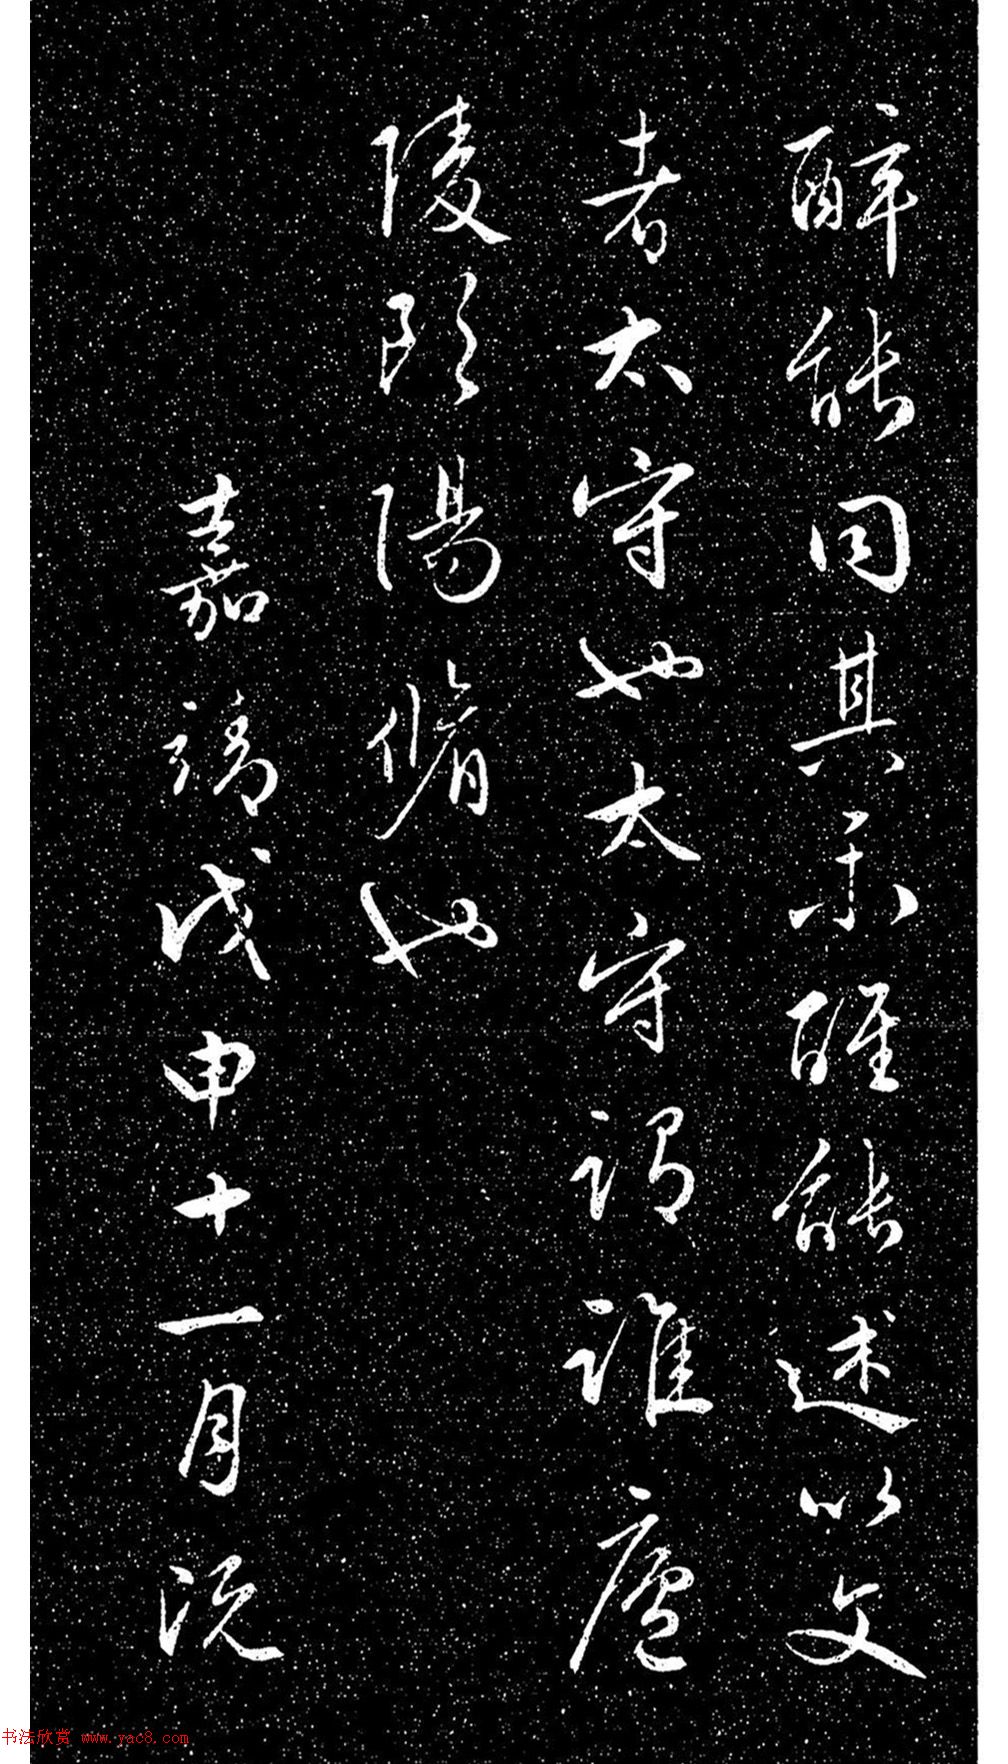 醉能同其樂醒能述以文
者太守也太守謂誰廬
陵歐陽脩也
嘉靖戊申十一月既
书法欣赏 www.yac8.com